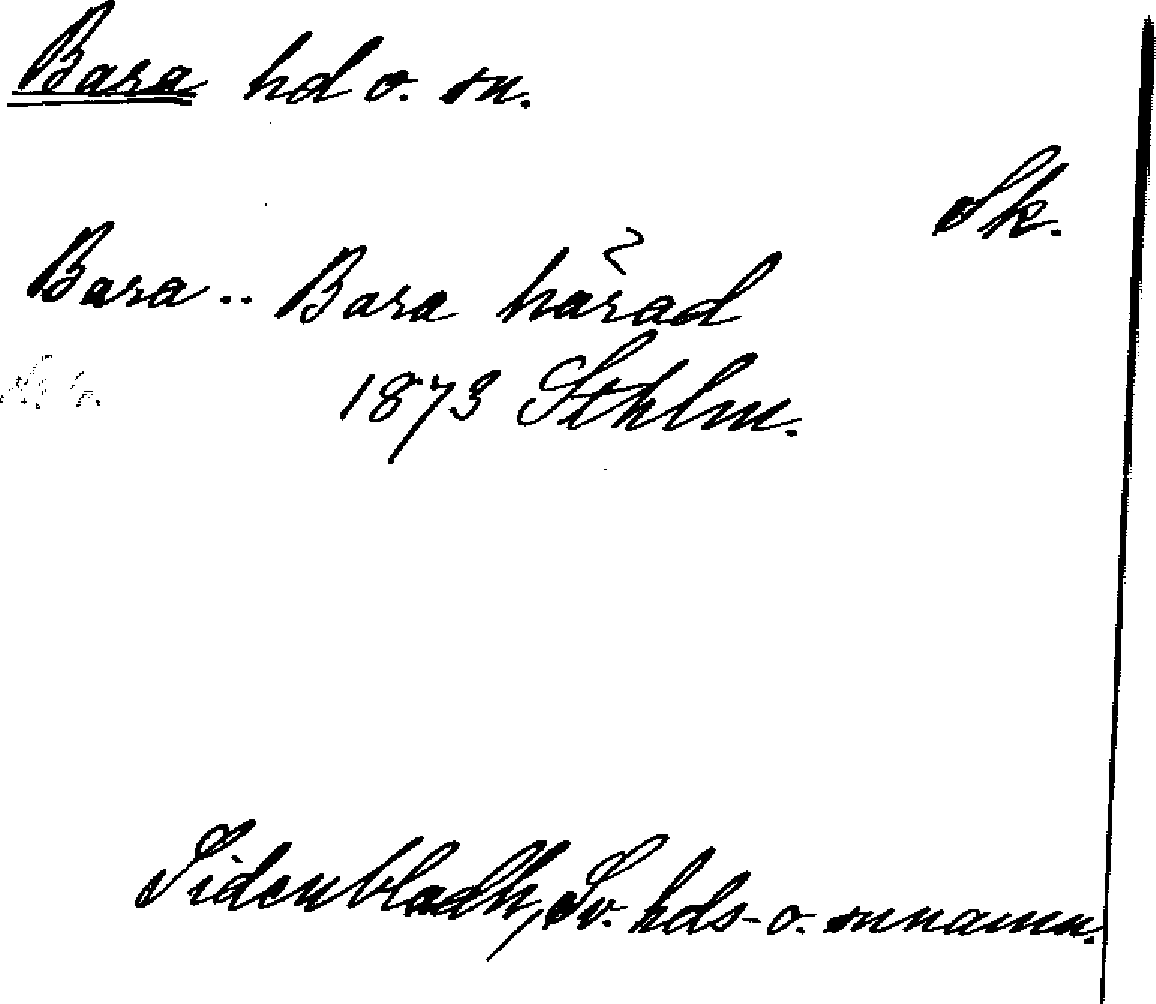 Bara hd o. sn.
Sk.
Bara .. Bara härad
1873 Sthlm.
Sidenbladh, Sv. hds- o. snnamn.